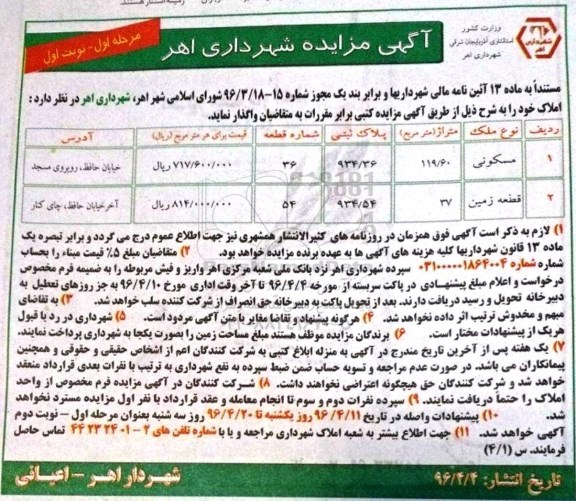 وزارت کشور
استانداری آذربایجان شرقی
شهرداری اهر
آگهی مزایده شهرداری اهر
مرحله اول - نوبت اول
مستنداً به ماده ۱۳ آئین نامه مالی شهرداریها و برابر بند یک مجوز شماره ۱۵-۹۶/۳/۱۸ شورای اسلامی شهر اهر، شهرداری اهر در نظر دارد :
املاک خود را به شرح ذیل از طریق آگهی مزایده کتبی برابر مقررات به متقاضیان واگذار نماید.
ردیف نوع ملک متراژ(متر مربع) پلاک ثبتی شماره قطعه قیمت برای هر متر مربع (ریال) آدرس
۱ مسکونی ۱۱۹/۶۰ ۹۳۴/۳۶ ۳۶ ۷۱۷/۶۰۰/۰۰۰ ریال خیابان حافظ، روبروی مسجد
۲ قطعه زمین ۳۷ ۹۳۴/۵۴ ۵۴ ۸۱۴/۰۰۰/۰۰۰ ریال آخر خیابان حافظ، چای کنار
۱) لازم به ذکر است آگهی فوق همزمان در روزنامه های کثیرالانتشار همشهری نیز جهت اطلاع عموم درج می گردد و برابر تبصره یک
ماده ۱۳ قانون شهرداریها کلیه هزینه های آگهی ها به عهده برنده مزایده خواهد بود. ۲) متقاضیان مبلغ ۵٪ قیمت مبناء را بحساب
شماره شماره ۰۳۱۰۰۰۰۰۱۸۶۴۰۰۴ سپرده شهرداری اهر نزد بانک ملی شعبه مرکزی اهر واریز و فیش مربوطه را به ضمیمه فرم مخصوص
درخواست و اعلام مبلغ پیشنهادی در پاکت سربسته از مورخه ۹۶/۴/۴ تا آخر وقت اداری مورخ ۹۶/۴/۱۰ به جز روزهای تعطیل به
دبیرخانه تحویل و رسید دریافت دارند. بعد از تحویل پاکت به دبیرخانه حق انصراف از شرکت کننده سلب خواهد شد. ۳) به تقاضای
مبهم و مخدوش ترتیب اثر داده نخواهد شد. ۴) هرگونه پیشنهاد و تقاضا مغایر با متن آگهی مردود است. ۵) شهرداری در رد یا قبول
هریک از پیشنهادات مختار است. ۶) برندگان مزایده موظف هستند مبلغ مساحت زمین را بصورت یکجا به شهرداری پرداخت نمایند.
۷) یک هفته پس از آخرین تاریخ مندرج در آگهی به منزله ابلاغ کتبی به شرکت کنندگان اعم از اشخاص حقیقی و حقوقی و همچنین
پیمانکاران می باشد. در صورت عدم مراجعه و تسویه حساب ضمن ضبط سپرده به نفع شهرداری به ترتیب با نفرات بعدی قرارداد منعقد
خواهد شد و شرکت کنندگان حق هیچگونه اعتراضی نخواهند داشت. ۸) شرکت کنندگان در آگهی مزایده فرم مخصوص از واحد
املاک را حتماً دریافت نمایند. ۹) سپرده نفرات دوم و سوم تا انجام معامله و عقد قرارداد با نفر اول مزایده مسترد نخواهد
شد. ۱۰) پیشنهادات واصله در تاریخ ۹۶/۴/۱۱ روز یکشنبه تا ۹۶/۴/۲۰ روز سه شنبه بعنوان مرحله اول – نوبت دوم
آگهی خواهد شد. ۱۱) جهت اطلاع بیشتر به شعبه املاک شهرداری مراجعه و یا با شماره تلفن های ۲ - ۴۴۲۳۲۴۰۱ تماس حاصل
فرمایند. س (۴/۱)
تاریخ انتشار: ۹۶/۴/۴
شهردار اهر – اعیانی